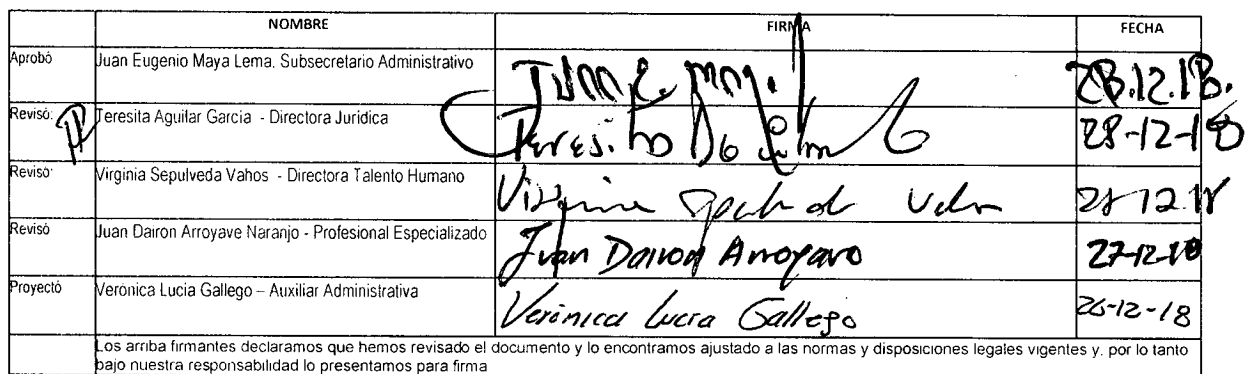 NOMBRE FIRMA FECHA
Aprobó Juan Eugenio Maya Lema. Subsecretario Administrativo Juan E. May. 28.12.18.
Revisó: Teresita Aguilar Garcia - Directora Jurídica Teresita Aguilar G 28-12-18
Revisó: Virginia Sepulveda Vahos - Directora Talento Humano Virginia 28-12-18
Revisó Juan Dairon Arroyave Naranjo - Profesional Especializado Juan Dairon Arroyave 27-12-18
Proyectó Verónica Lucia Gallego – Auxiliar Administrativa Verónica Lucia Gallego 26-12-18
Los arriba firmantes declaramos que hemos revisado el documento y lo encontramos ajustado a las normas y disposiciones legales vigentes y. por lo tanto
bajo nuestra responsabilidad lo presentamos para firma